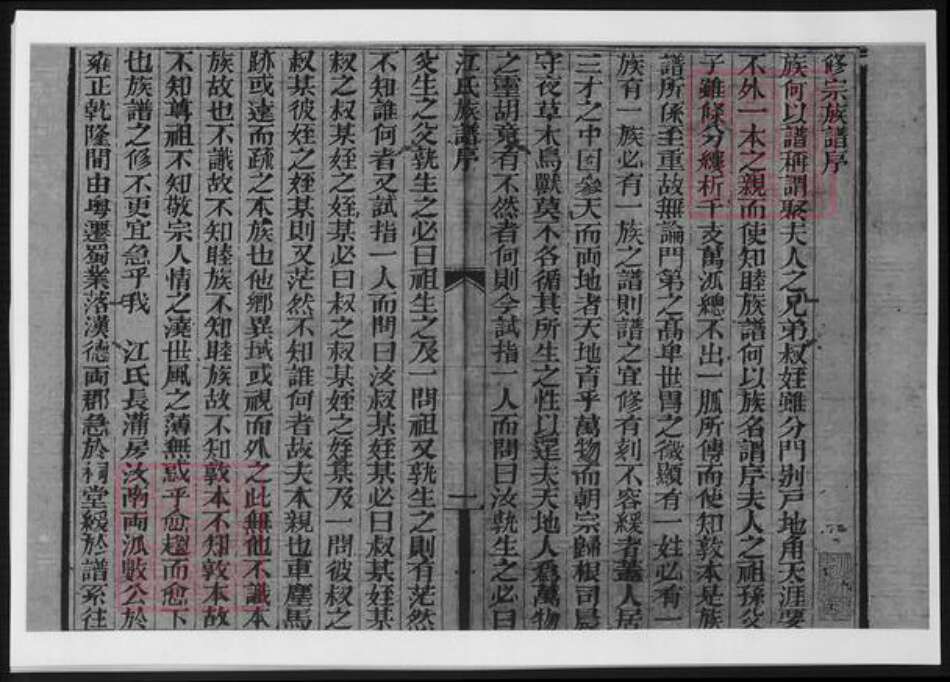 修宗族譜序
族何以譜稱謂聚夫人之兄弟叔姪雖分門别戸地角天涯要
不外一本之親而使知睦族譜何以族名謂序夫人之祖孫父
子雖條分縷析千支萬派總不出一脈所傳而使知敦本是族
譜所係至重故無論門第之高卑世胄之微顯有一姓必有一
族有一族必有一族之譜則譜之宜修有刻不容緩者蓋人居
三才之中固參天而兩地者天地育乎萬物而朝宗歸根司晨
守夜草木鳥獸莫不各循其所生之性以逹夫天地人為萬物
之靈胡竟有不然者何則今試指一人而問曰汝孰生之必曰
江氏族譜序 一
父生之父孰生之必曰祖生之及一問祖又孰生之則有茫然
不知誰何者又試指一人而問曰汝叔某姪某必曰叔某姪某
叔之叔某姪之姪某必曰叔之叔某姪之姪某及一問彼叔之
叔某彼姪之姪某則又茫然不知誰何者故夫本親也車塵馬
跡或逺而疏之本族也他鄉異域或視而外之此無他不識本
族故也不識故不知睦族不知睦族故不知敦本不知敦本故
不知尊祖不知敬宗人情之澆世風之薄無惑乎愈趨而愈下
也族譜之修不更宜急乎我 江氏長蒲房汝南兩派數公於
雍正乾隆間由粤遷蜀業落漢德兩郡急於祠堂緩於譜系往